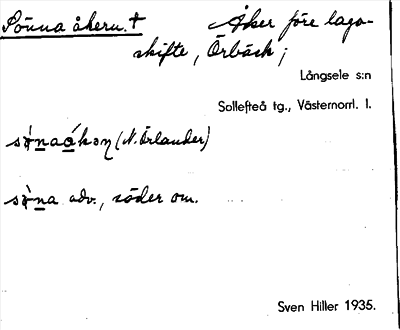 Sönna åkern. † Åker före laga-
skifte, Örbäck;
Långsele s:n
Sollefteå tg., Västernorrl. l.
sø̀naákəɳ (N. Örlander)
sø̀na adv., söder om.
Sven Hiller 1935.